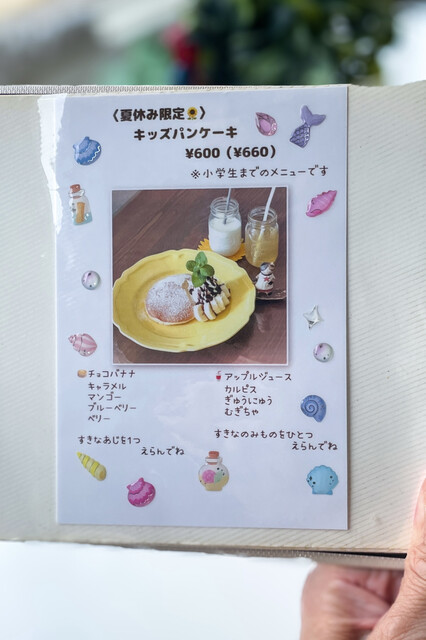 〈夏休み限定🌻〉
キッズパンケーキ
¥600(¥660)
※小学生までのメニューです
チョコバナナ
キャラメル
マンゴー
ブルーベリー
ベリー
すきなあじを1つ
えらんでね
アップルジュース
カルピス
ぎゅうにゅう
むぎちゃ
すきなのみものをひとつ
えらんでね